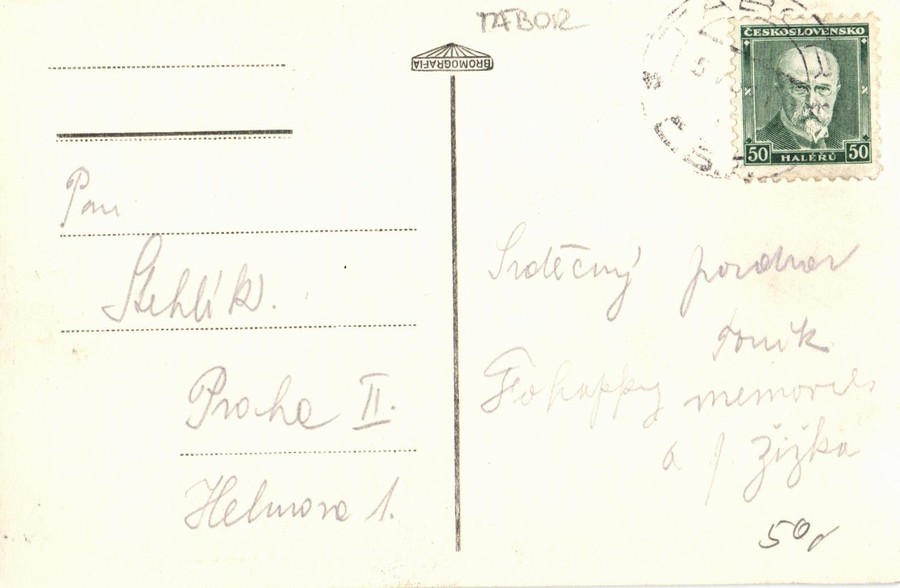 TÁBOR
BROMOGRAFIA
ČESKOSLOVENSKO
50 HALÉŘŮ 50
Pan
Stehlík.
Praha II.
Helmova 1.
Srděčný pozdrav
Toník
memories
a J. Žižka
50